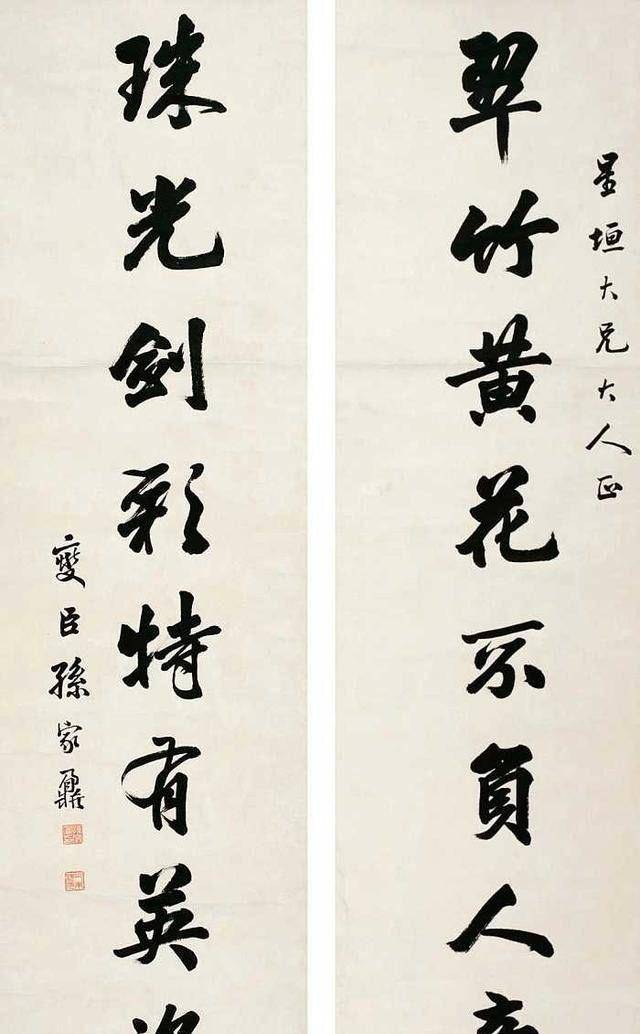 星垣大兄大人正
翠竹黄花不負人
珠光劍彩特有英
燮臣孫家鼐